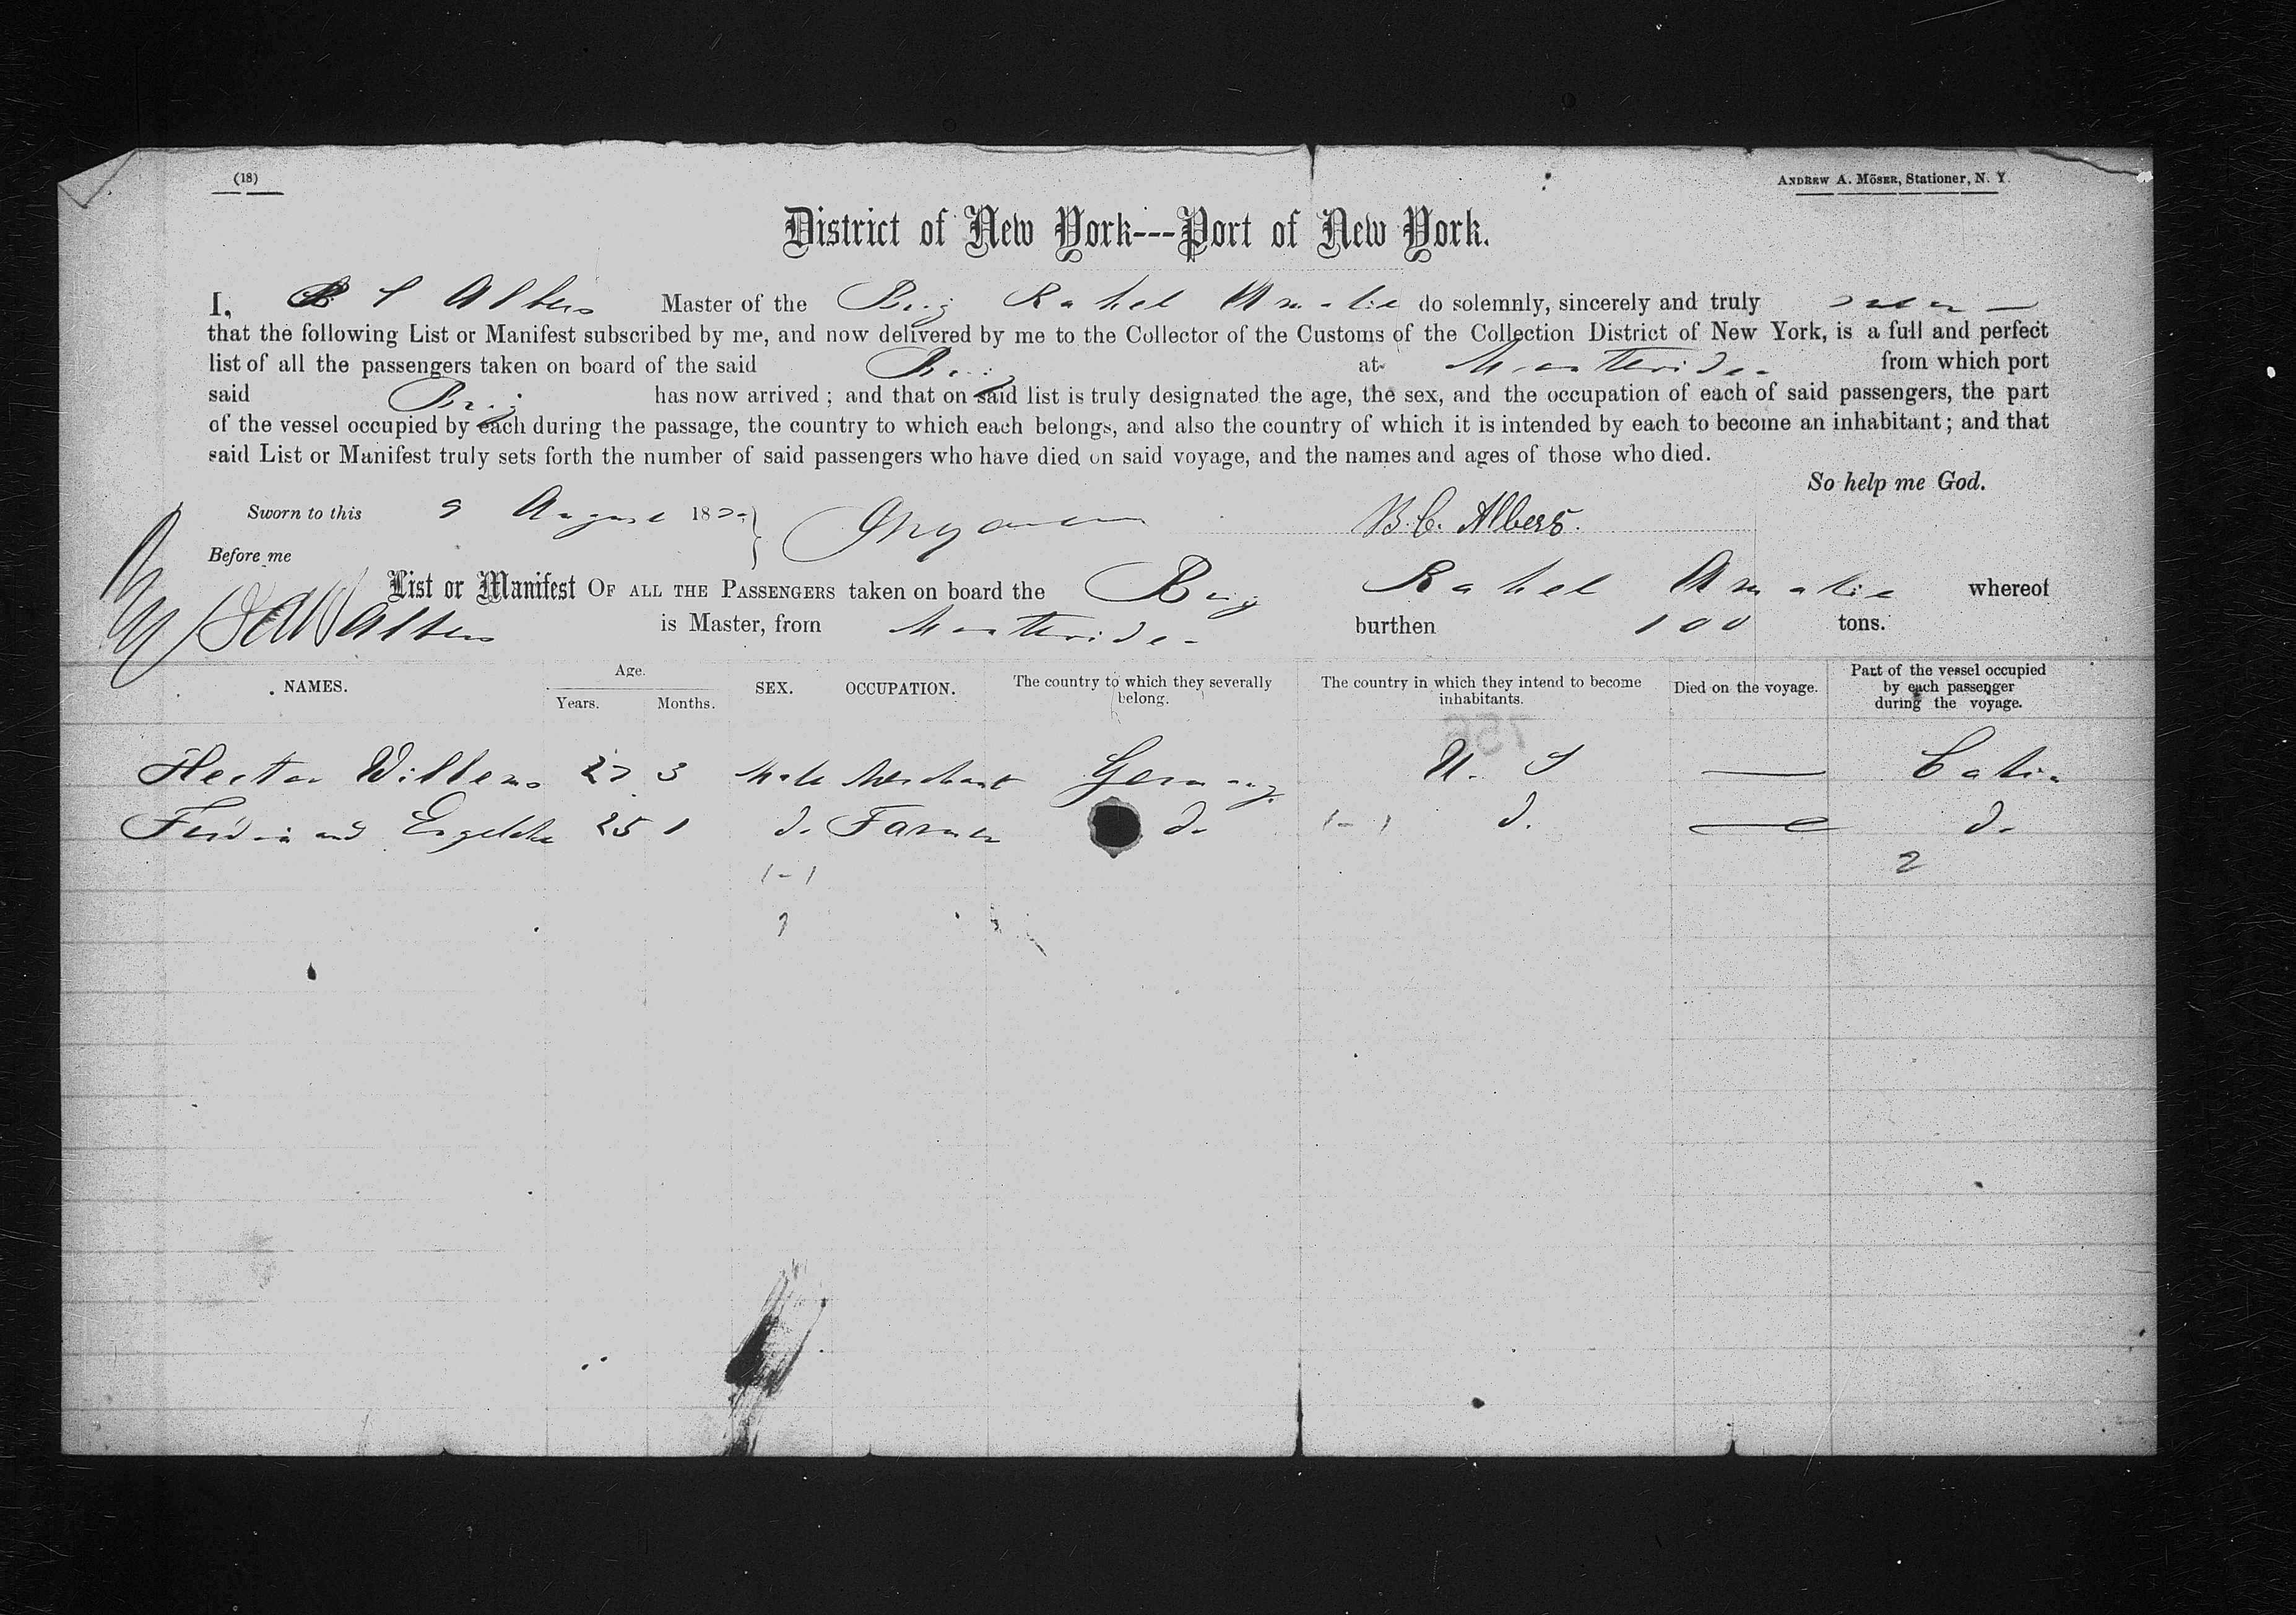 (18)
ANDREW A. MÖSER, Stationer, N. Y.
District of New York---Port of New York.
I, B C Albers Master of the Brig Rahel Amalie do solemnly, sincerely and truly swear
that the following List or Manifest subscribed by me, and now delivered by me to the Collector of the Customs of the Collection District of New York, is a full and perfect
list of all the passengers taken on board of the said Brig at Montevideo from which port
said Brig has now arrived ; and that on said list is truly designated the age, the sex, and the occupation of each of said passengers, the part
of the vessel occupied by each during the passage, the country to which each belongs, and also the country of which it is intended by each to become an inhabitant ; and that
said List or Manifest truly sets forth the number of said passengers who have died on said voyage, and the names and ages of those who died.
So help me God.
Sworn to this 9 August 18 B. C. Albers.
Before me
List or Manifest OF ALL THE PASSENGERS taken on board the Brig Rahel Amalie whereof
Albers is Master, from Montevideo burthen 100 tons.
NAMES. Age. Years. Months. SEX. OCCUPATION. The country to which they severally belong. The country in which they intend to become inhabitants. Died on the voyage. Part of the vessel occupied by each passenger during the voyage.
756
Hector Willems 27 3 Male Merchant Germany U. S — Cabin
Ferdinand 25 1 do Farmer do 1-1 do — do
2
1-1